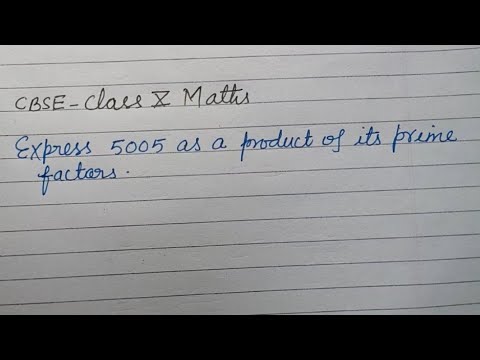 CBSE - Class X Maths
Express 5005 as a product of its prime
factors.